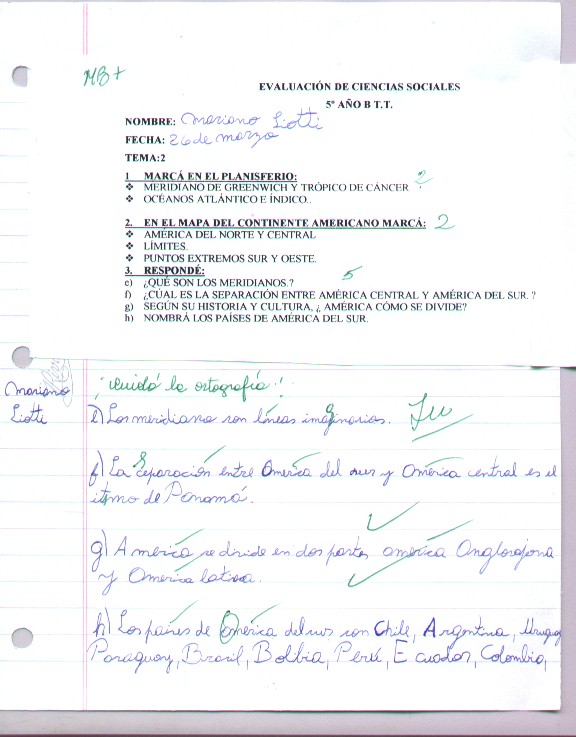 MB+
EVALUACIÓN DE CIENCIAS SOCIALES
5º AÑO B T.T.
NOMBRE: Mariano Liotti
FECHA: 26 de marzo
TEMA:2
1 MARCÁ EN EL PLANISFERIO: 2
❖ MERIDIANO DE GREENWICH Y TRÓPICO DE CÁNCER
❖ OCÉANOS ATLÁNTICO E ÍNDICO..
2. EN EL MAPA DEL CONTINENTE AMERICANO MARCÁ: 2
❖ AMÉRICA DEL NORTE Y CENTRAL
❖ LÍMITES.
❖ PUNTOS EXTREMOS SUR Y OESTE.
3. RESPONDÉ: 5
e) ¿QUÉ SON LOS MERIDIANOS.?
f) ¿CÚAL ES LA SEPARACIÓN ENTRE AMÉRICA CENTRAL Y AMÉRICA DEL SUR. ?
g) SEGÚN SU HISTORIA Y CULTURA, ¿ AMÉRICA CÓMO SE DIVIDE?
h) NOMBRÁ LOS PAÍSES DE AMÉRICA DEL SUR.
Mariano
Liotti
¡Cuidá la ortografía!
e) Los meridiano son líneas imaginarias.
f) La separación entre America del sur y América central es el
itmo de Panamá.
g) America se divide en dos partes america Anglosajona
y America latina.
h) Los países de América del sur son Chile, Argentina, Uruguay
Paraguay, Brasil, Bolibia, Perú, Ecuador, Colombia,